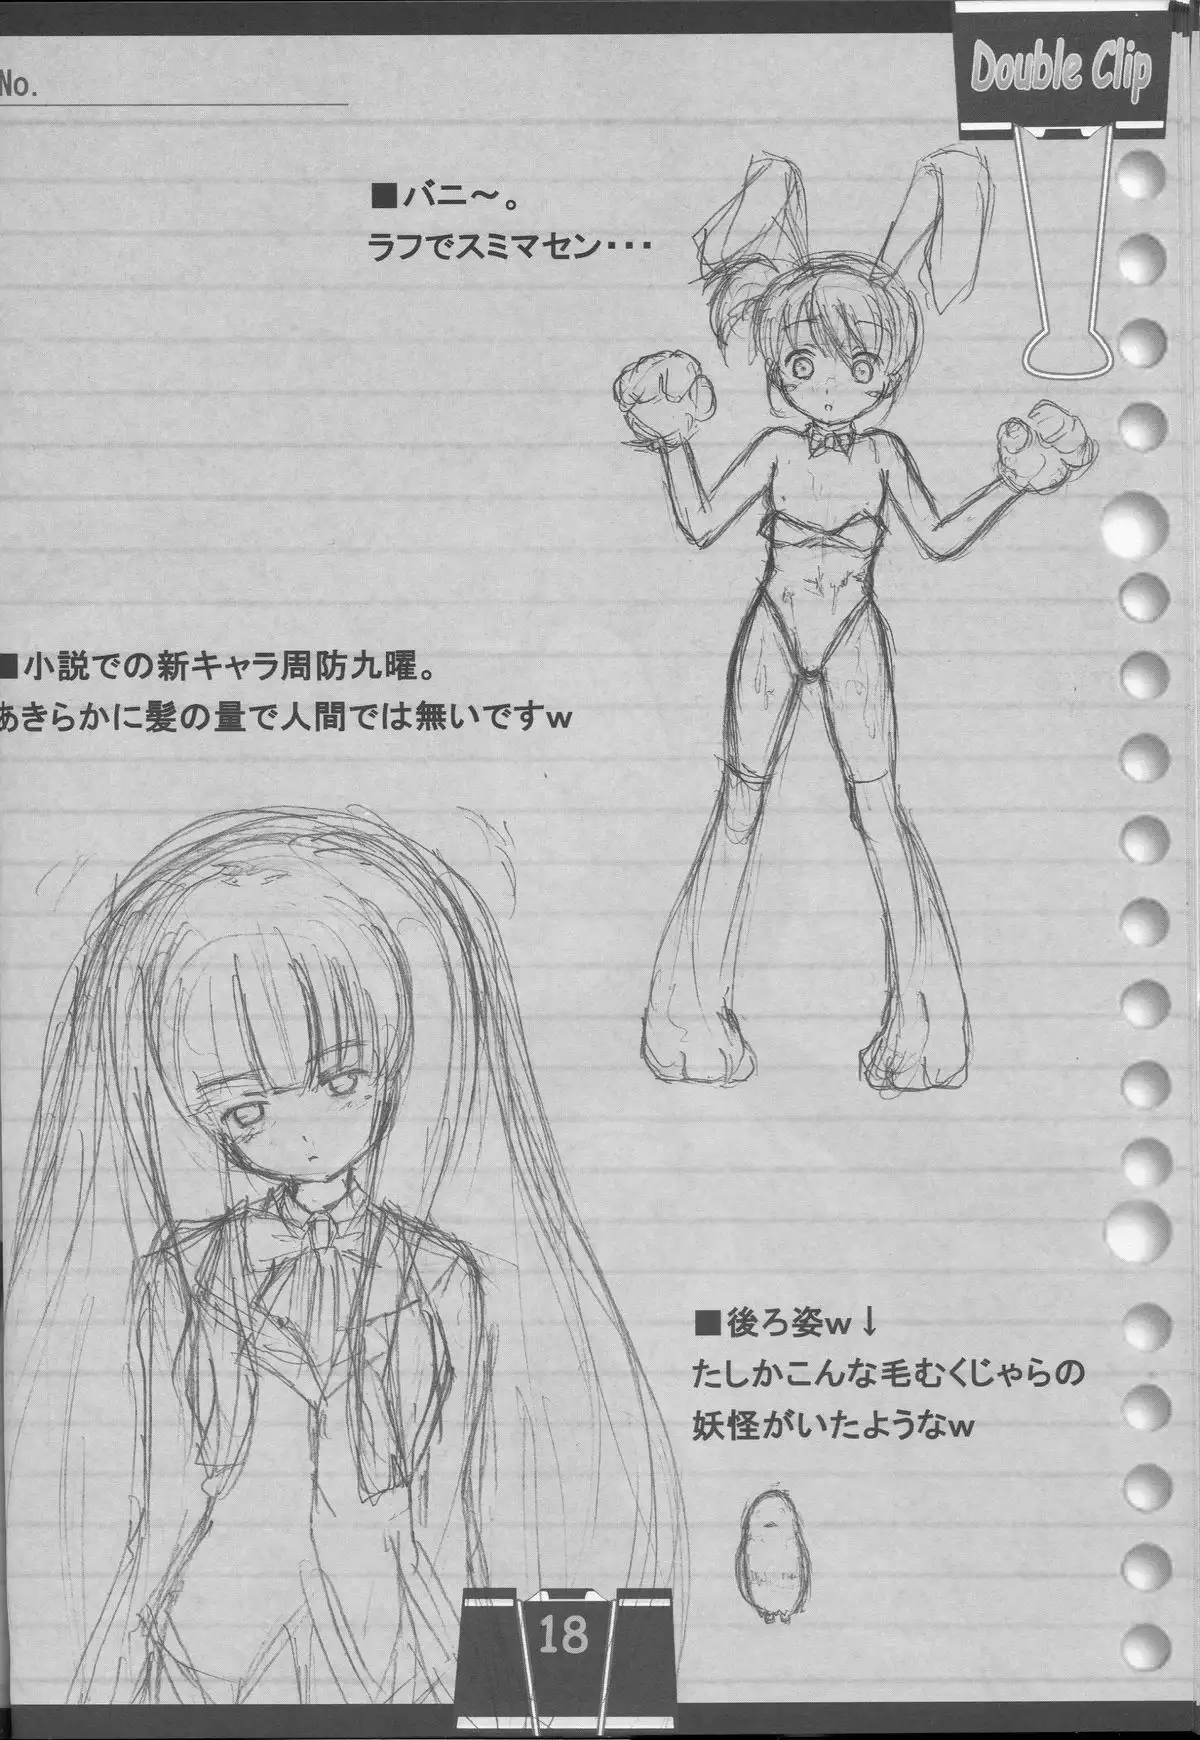 Double Clip
No.
■バニ～。
ラフでスミマセン・・・
■小説での新キャラ周防九曜。
あきらかに髪の量で人間では無いですｗ
■後ろ姿ｗ↓
たしかこんな毛むくじゃらの
妖怪がいたようなｗ
18